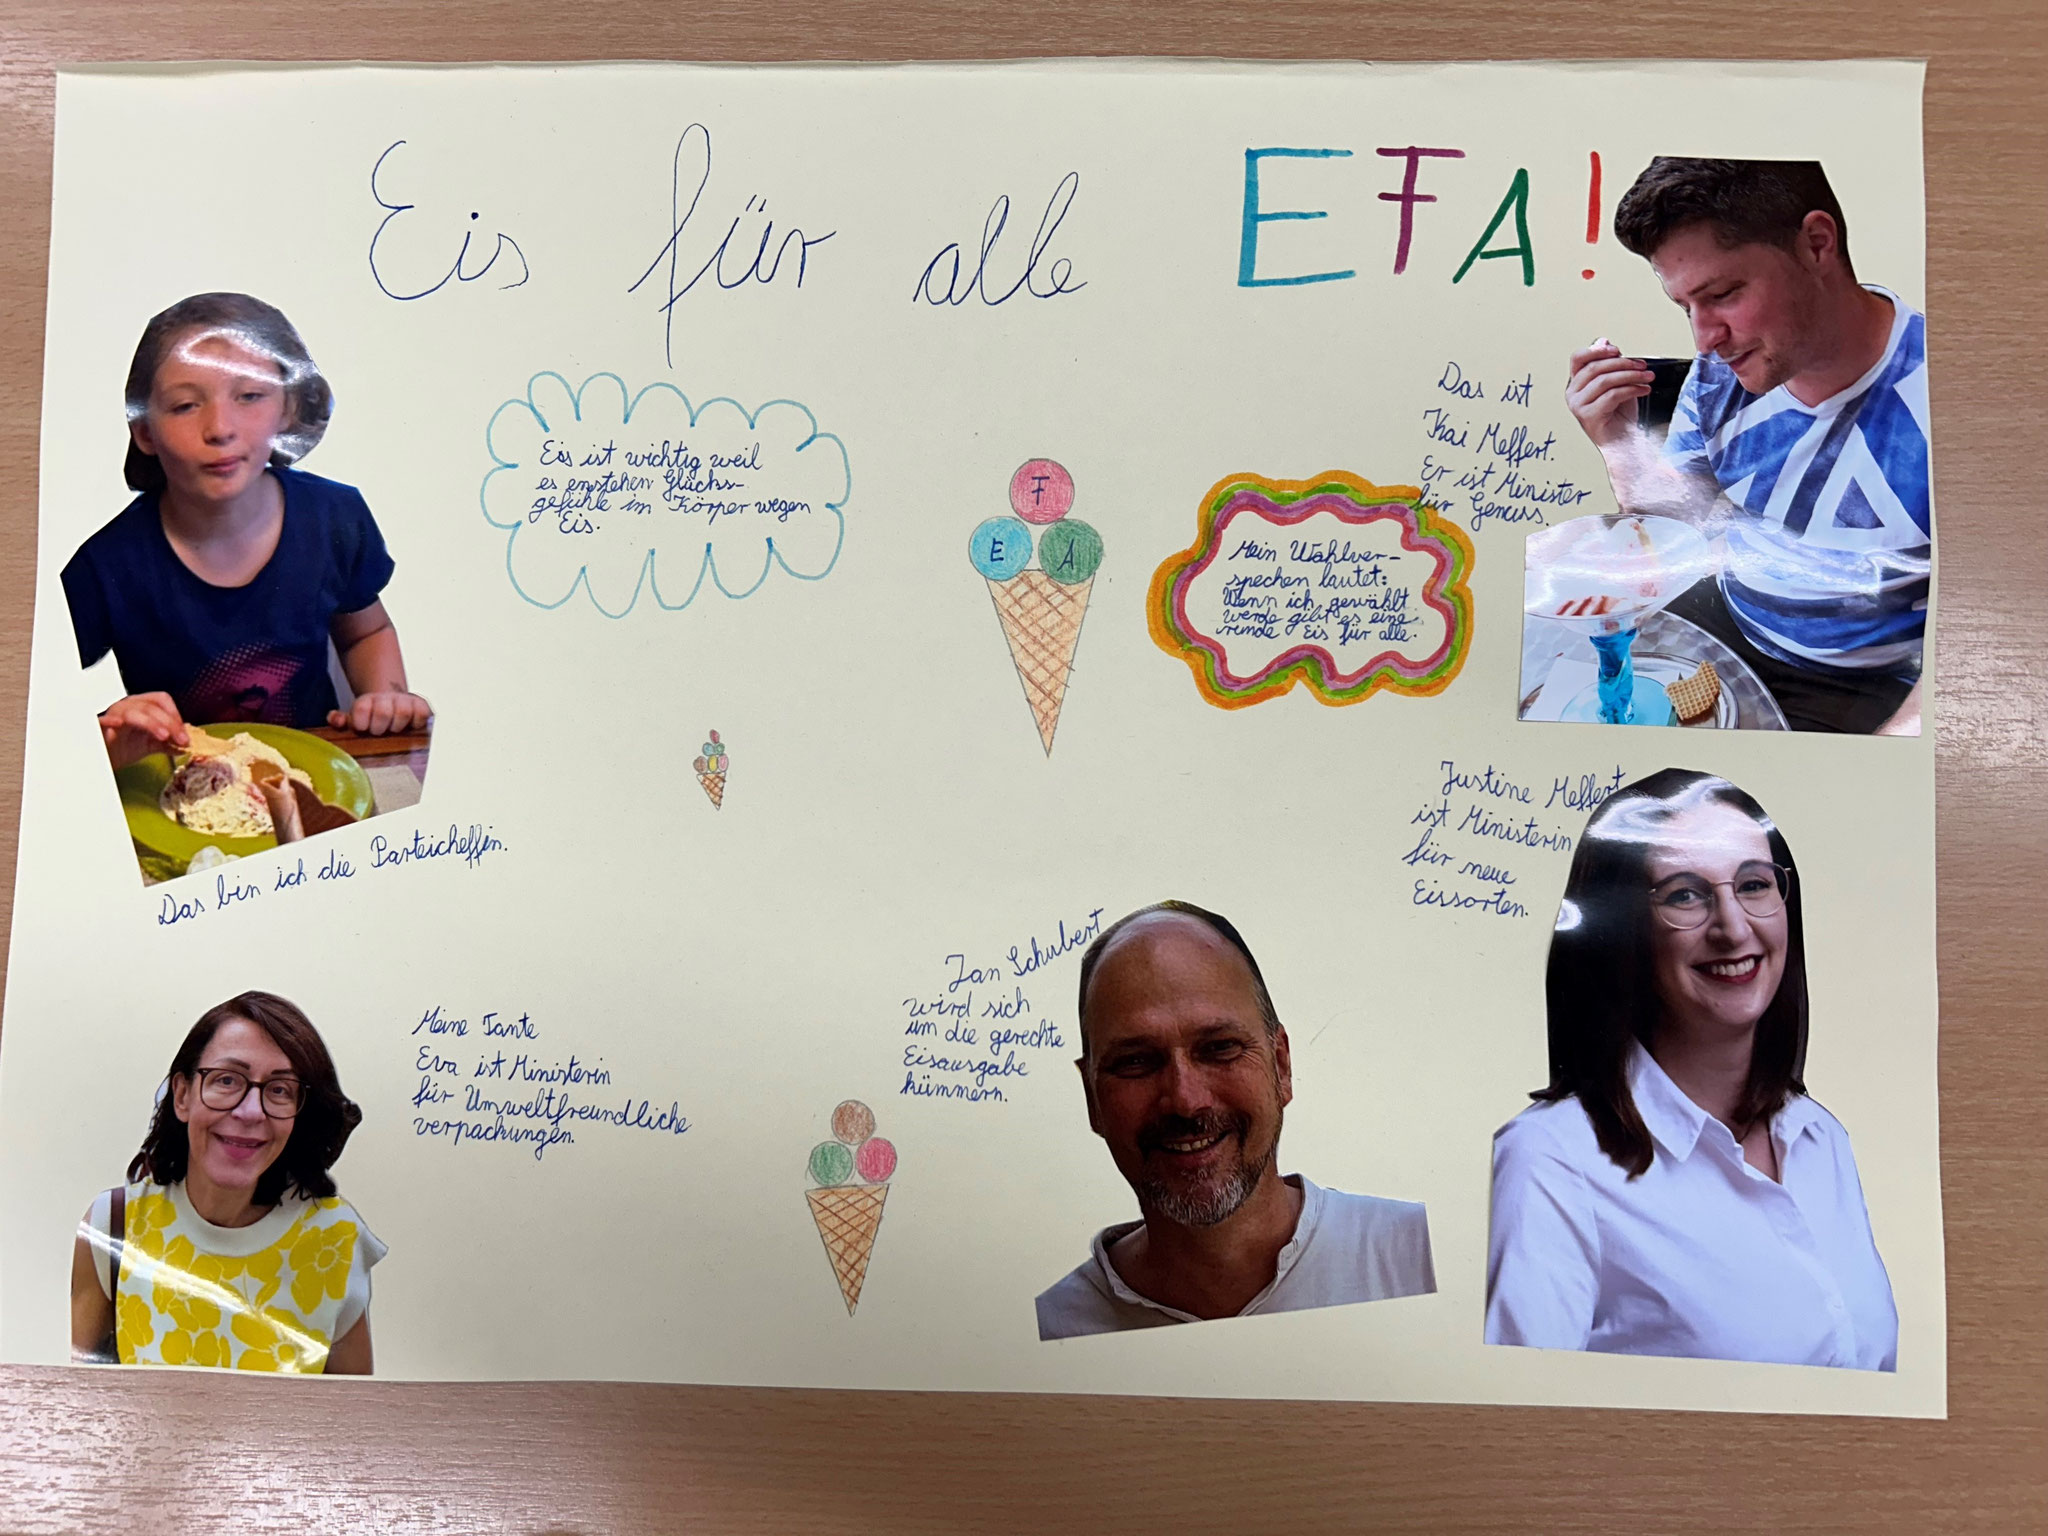 Eis für alle EFA!
Eis ist wichtig weil
es enstehen Glücks-
gefühle im Körper wegen
Eis.
F
E A
Mein Wahlver-
spechen lautet:
Wenn ich gewählt
werde gibt es eine
runde Eis für alle.
Das ist
Kai Meffert.
Er ist Minister
für Genuss.
Das bin ich die Parteicheffin.
Justine Meffert
ist Ministerin
für neue
Eissorten.
Meine Tante
Eva ist Ministerin
für Umweltfreundliche
verpackungen.
Jan Schubert
wird sich
um die gerechte
Eisausgabe
kümmern.